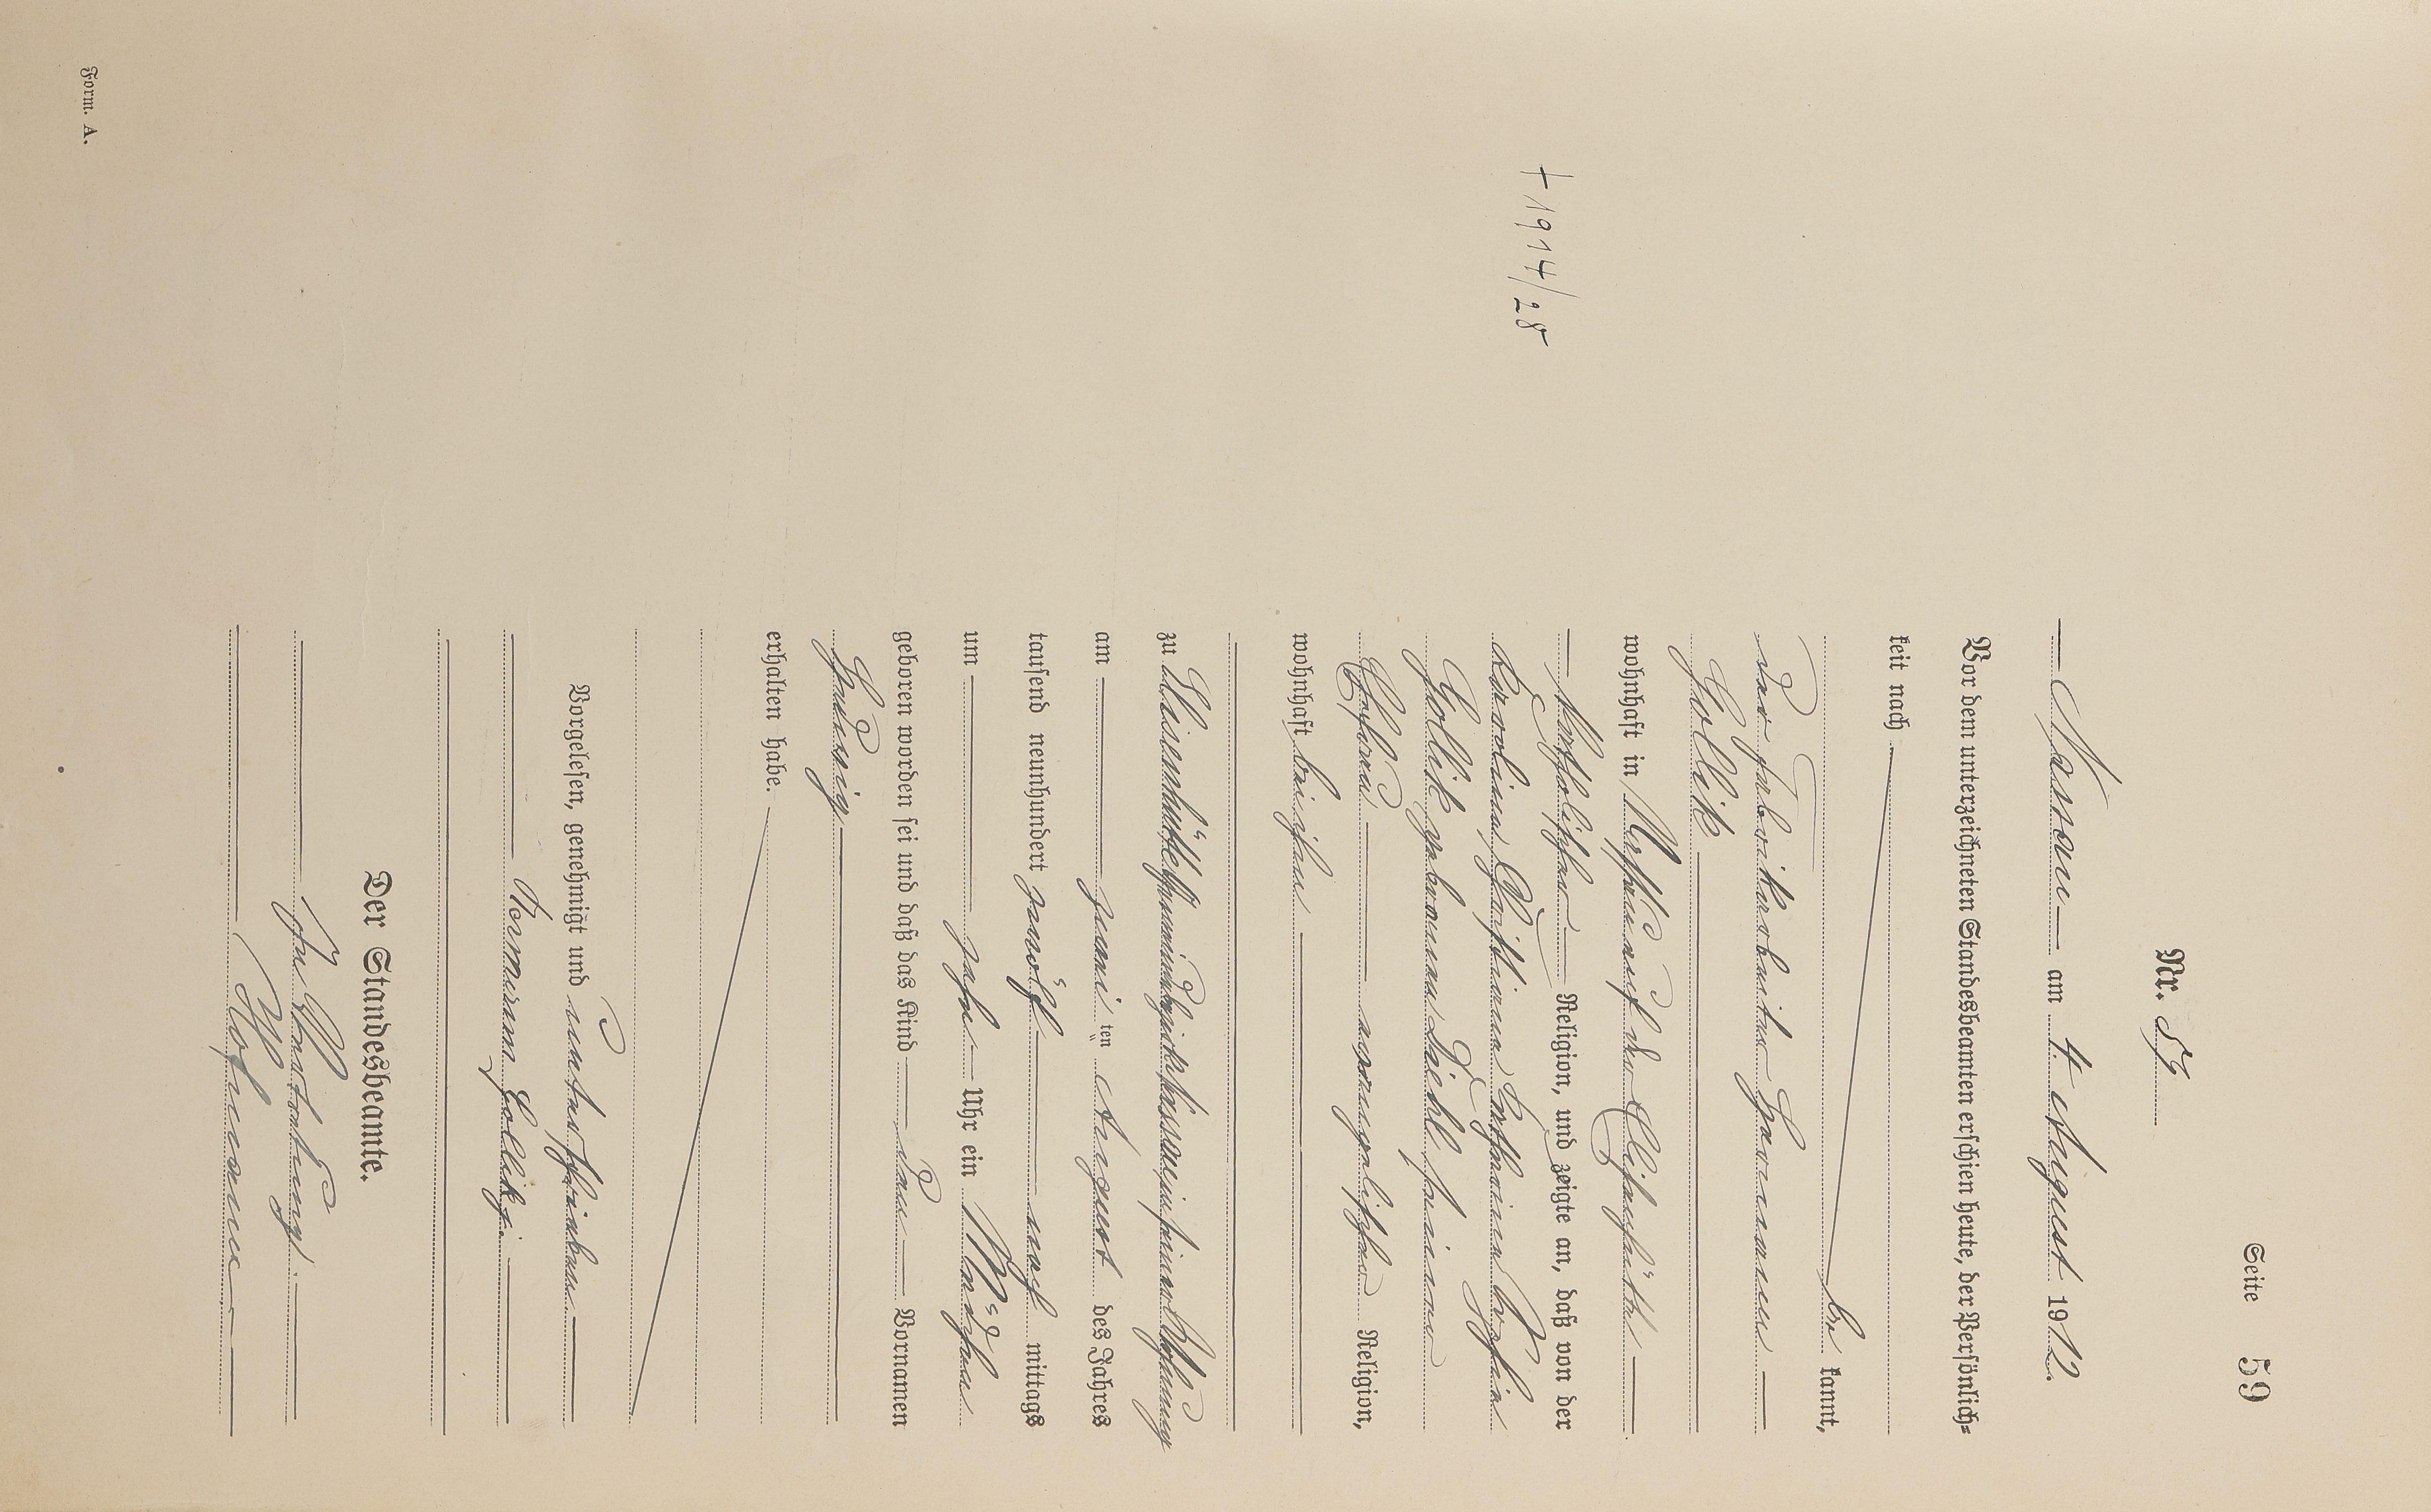 Seite 59
Nr. 59
Nassau am 4. August 1912.
Vor dem unterzeichneten Standesbeamten erschien heute, der Persönlich-
keit nach
be kannt,
der Fabrikarbeiter Hermann
Gollik
wohnhaft in Nassau auf der Elisenhütte
katholischer Religion, und zeigte an, daß von der
Karoline Christiane Kathrine Sofia
Gollik geborenen Diehl seiner
Ehefrau evangelischer Religion,
wohnhaft bei ihm
zu Elisenhütte in seiner Wohnung
am zwei ten August des Jahres
tausend neunhundert zwölf nach mittags
um zehn Uhr ein Mädchen
geboren worden sei und daß das Kind den Vornamen
Hedwig
erhalten habe.
Vorgelesen, genehmigt und unterschrieben
Hermann Gollik.
Der Standesbeamte.
In Vertretung.
Hofmann
+ 1914/28
Form. A.